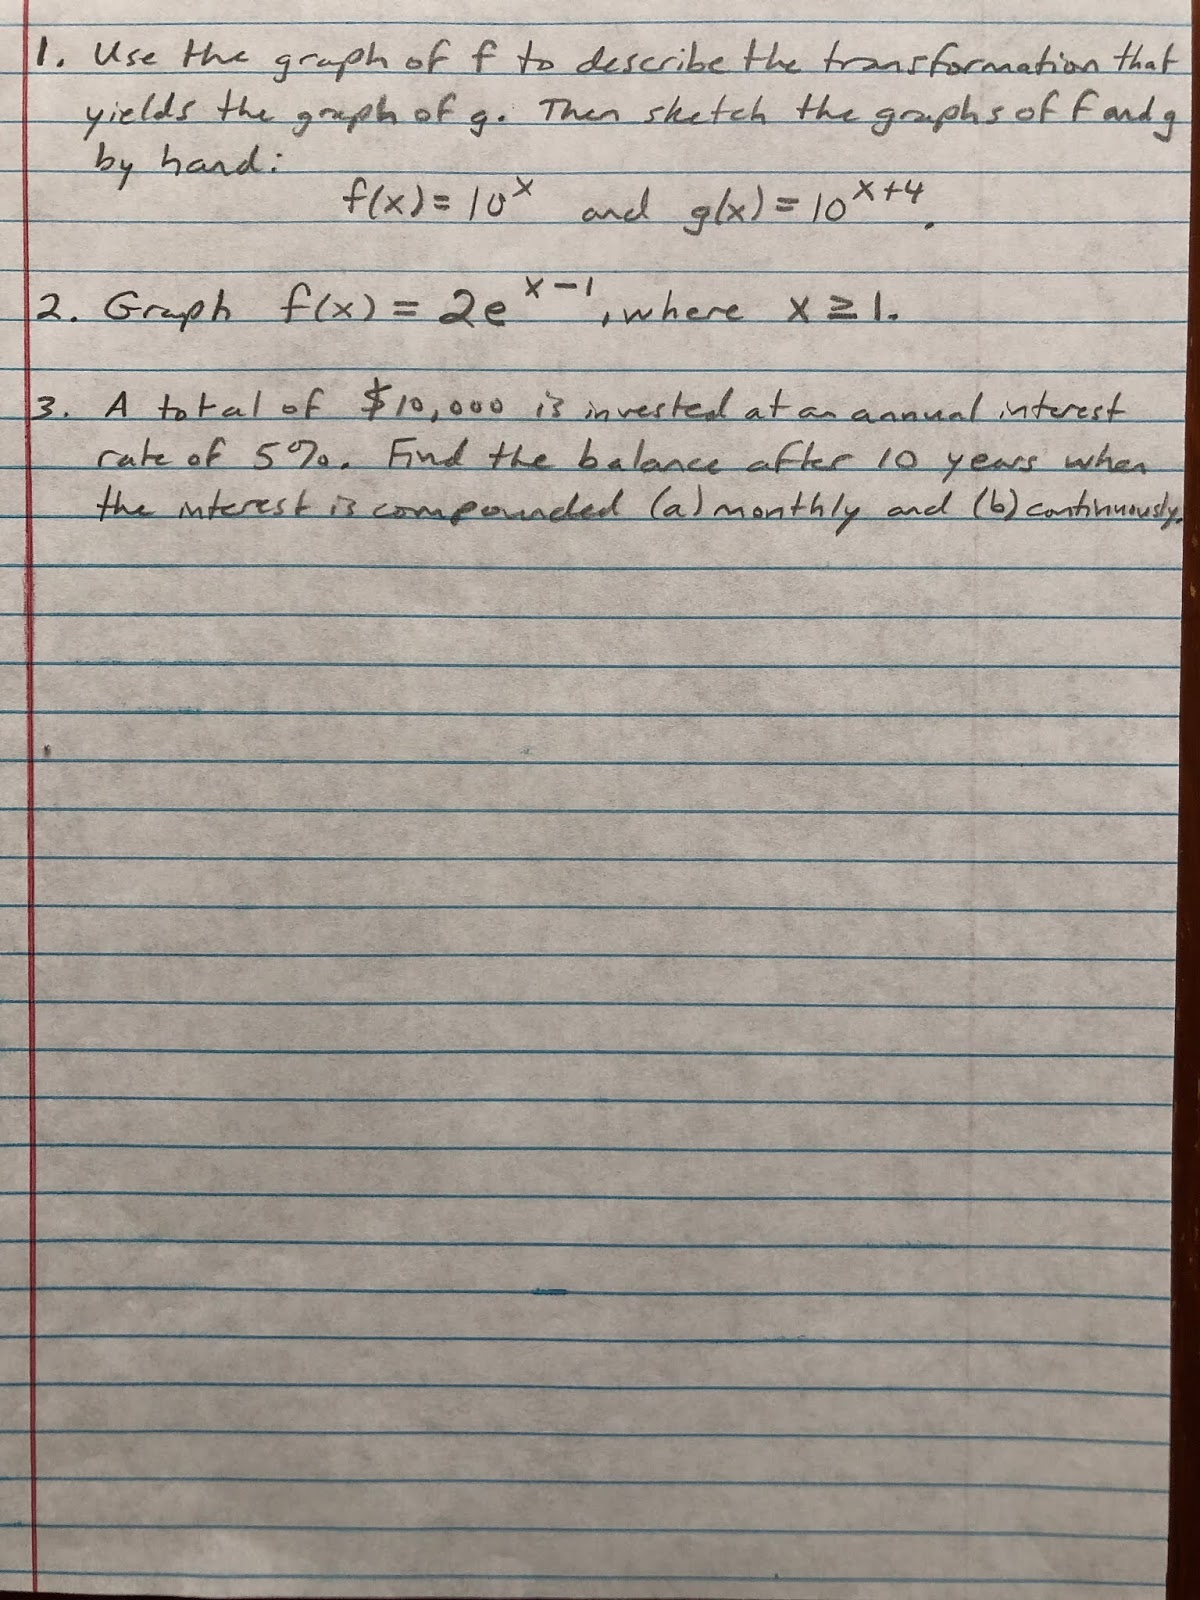 1. Use the graph of f to describe the transformation that
yields the graph of g. Then sketch the graphs of f and g
by hand:
f(x) = 10^x and g(x) = 10^x+4.
2. Graph f(x) = 2e^x-1, where x ≥ 1.
3. A total of $10,000 is invested at an annual interest
rate of 5%. Find the balance after 10 years when
the interest is compounded (a) monthly and (b) continuously.